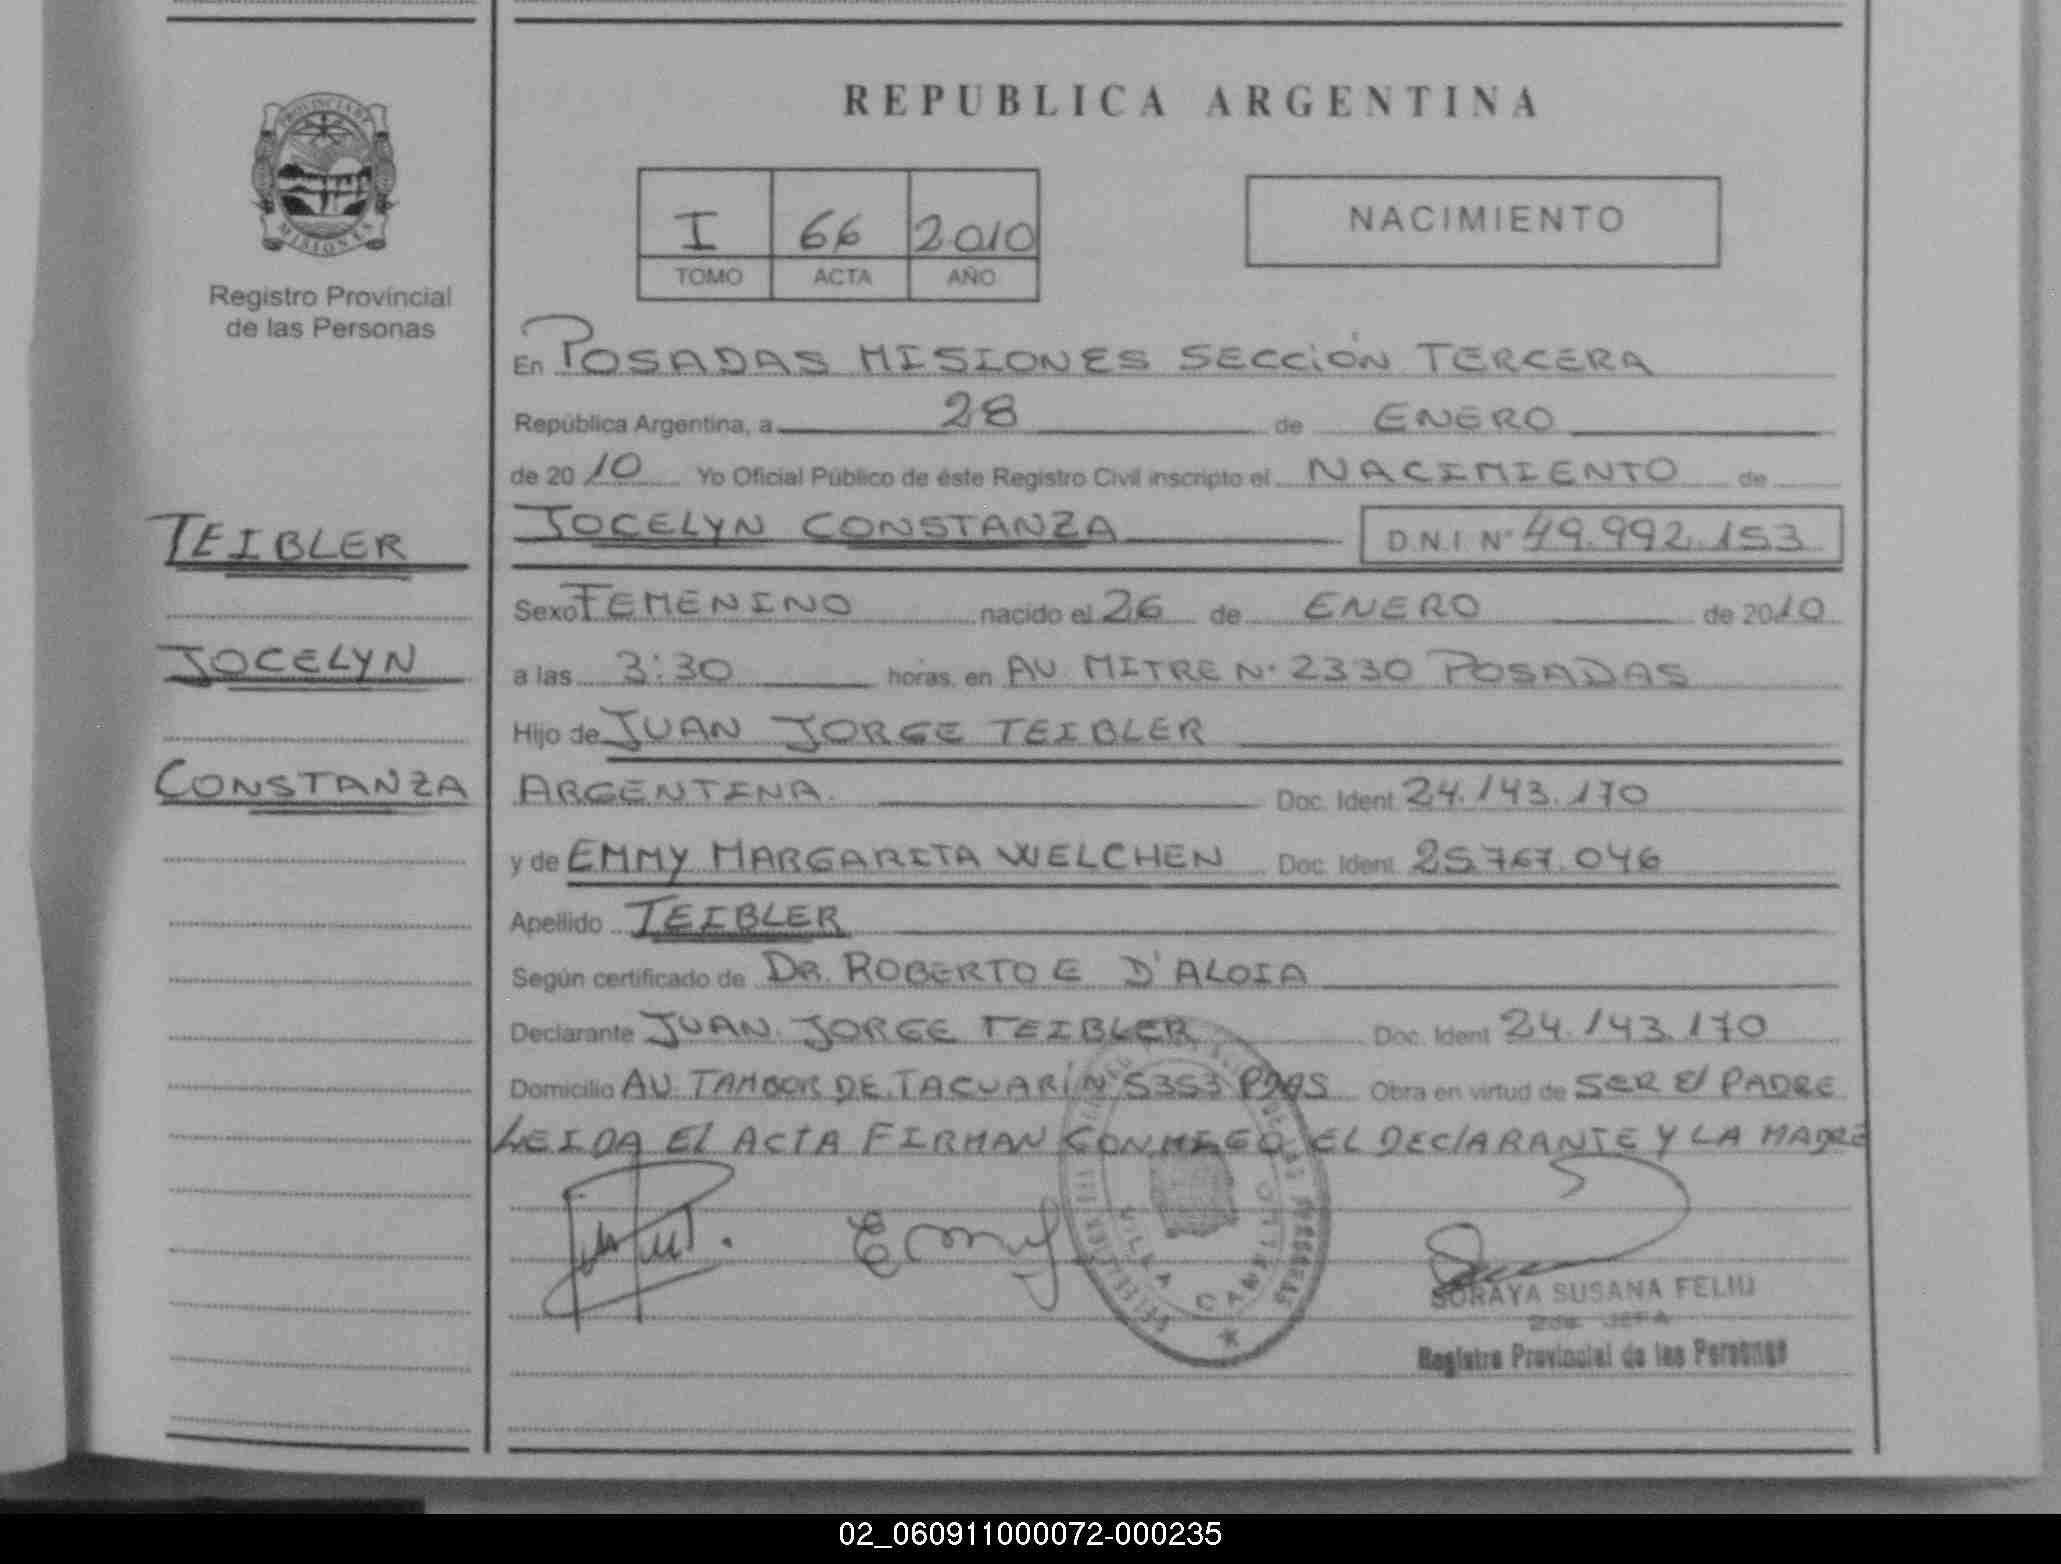 REPUBLICA ARGENTINA
PROVINCIA DE
MISIONES
Registro Provincial
de las Personas
I 66 2010
TOMO ACTA AÑO
NACIMIENTO
En POSADAS MISIONES SECCIÓN TERCERA
República Argentina, a 28 de ENERO
de 2010 Yo Oficial Público de éste Registro Civil inscripto el NACIMIENTO de
TEIBLER
JOCELYN CONSTANZA D.N.I. Nº 49.992.153
Sexo FEMENINO nacido el 26 de ENERO de 2010
JOCELYN
a las 3:30 horas, en AV. MITRE Nº 2330 POSADAS
Hijo de JUAN JORGE TEIBLER
CONSTANZA
ARGENTINA. Doc. Ident 24.143.170
y de EMMY MARGARITA WELCHEN Doc. Ident. 25.767.046
Apellido TEIBLER
Según certificado de DR. ROBERTO E D'ALOIA
Declarante JUAN JORGE TEIBLER Doc. Ident 24.143.170
Domicilio AV. TAMBOR DE TACUARÍ Nº 5353 PDAS Obra en virtud de SER El PADRE
LEIDA El ACTA FIRMAN CONMIGO EL DEClARANTE Y LA MADRE
Emmy
VILLA CABELLO
SORAYA SUSANA FELIU
JEFA
Registro Provincial de las Personas
02_060911000072-000235